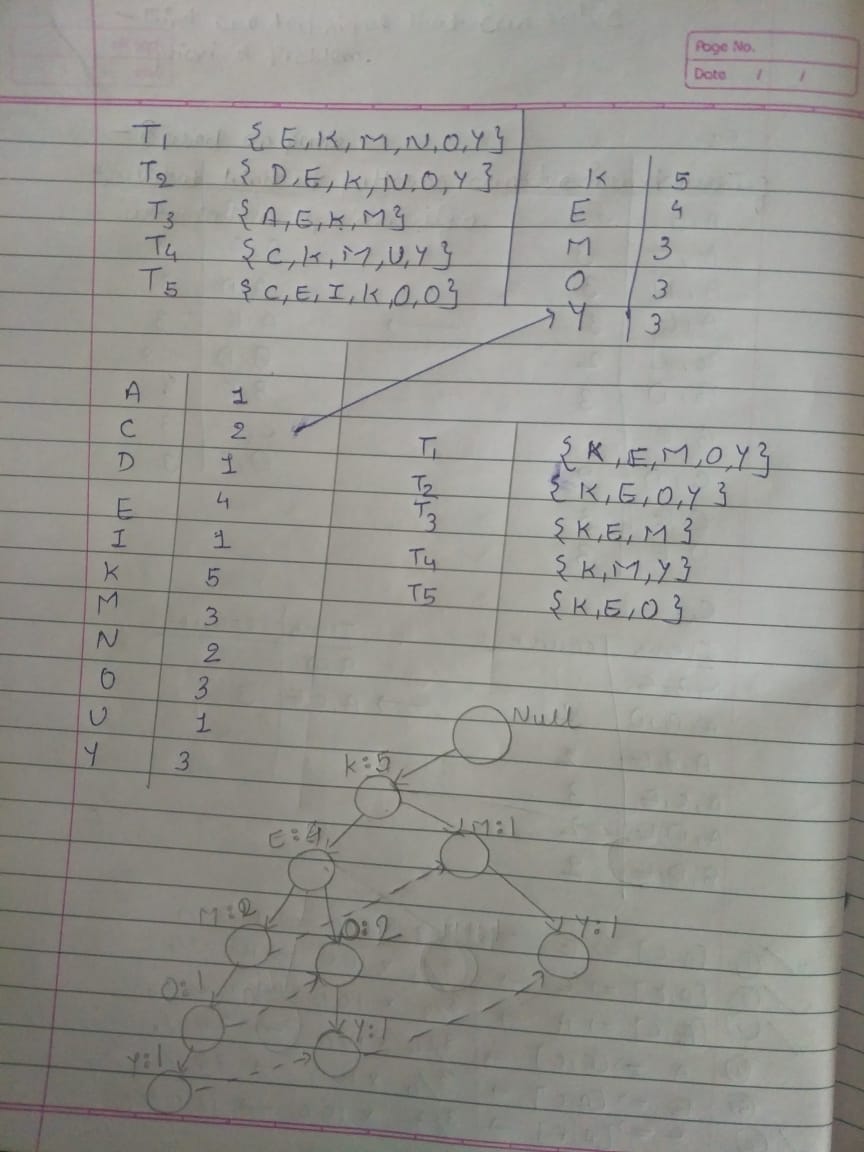 Page No.
Date / /
T1 { E, K, M, N, O, Y }
T2 { D, E, K, N, O, Y }
T3 { A, E, K, M }
T4 { C, K, M, U, Y }
T5 { C, E, I, K, O, O }
K 5
E 4
M 3
O 3
Y 3
A 1
C 2
D 1
E 4
I 1
K 5
M 3
N 2
O 3
U 1
Y 3
T1 { K, E, M, O, Y }
T2 { K, E, O, Y }
T3 { K, E, M }
T4 { K, M, Y }
T5 { K, E, O }
Null
K:5
E:4 M:1
M:2 O:2 Y:1
O:1 Y:1
Y:1